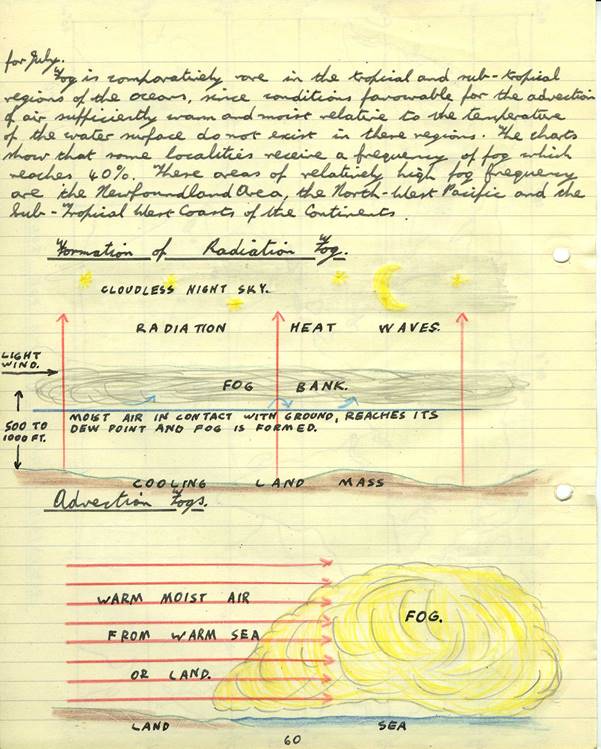 for July.
Fog is comparatively rare in the tropical and sub-tropical
regions of the oceans, since conditions favourable for the advection
of air sufficiently warm and moist relative to the temperature
of the water surface do not exist in these regions. The charts
show that some localities receive a frequency of fog which
reaches 40%. These areas of relatively high fog frequency
are the Newfoundland Area, the North-West Pacific and the
Sub-Tropical West Coasts of the Continents.
Formation of Radiation Fog.
CLOUDLESS NIGHT SKY.
RADIATION HEAT WAVES.
LIGHT
WIND.
FOG BANK.
500 TO
1000 FT.
MOIST AIR IN CONTACT WITH GROUND, REACHES ITS
DEW POINT AND FOG IS FORMED.
COOLING LAND MASS
Advection Fogs.
WARM MOIST AIR
FROM WARM SEA
OR LAND.
FOG.
LAND SEA
60